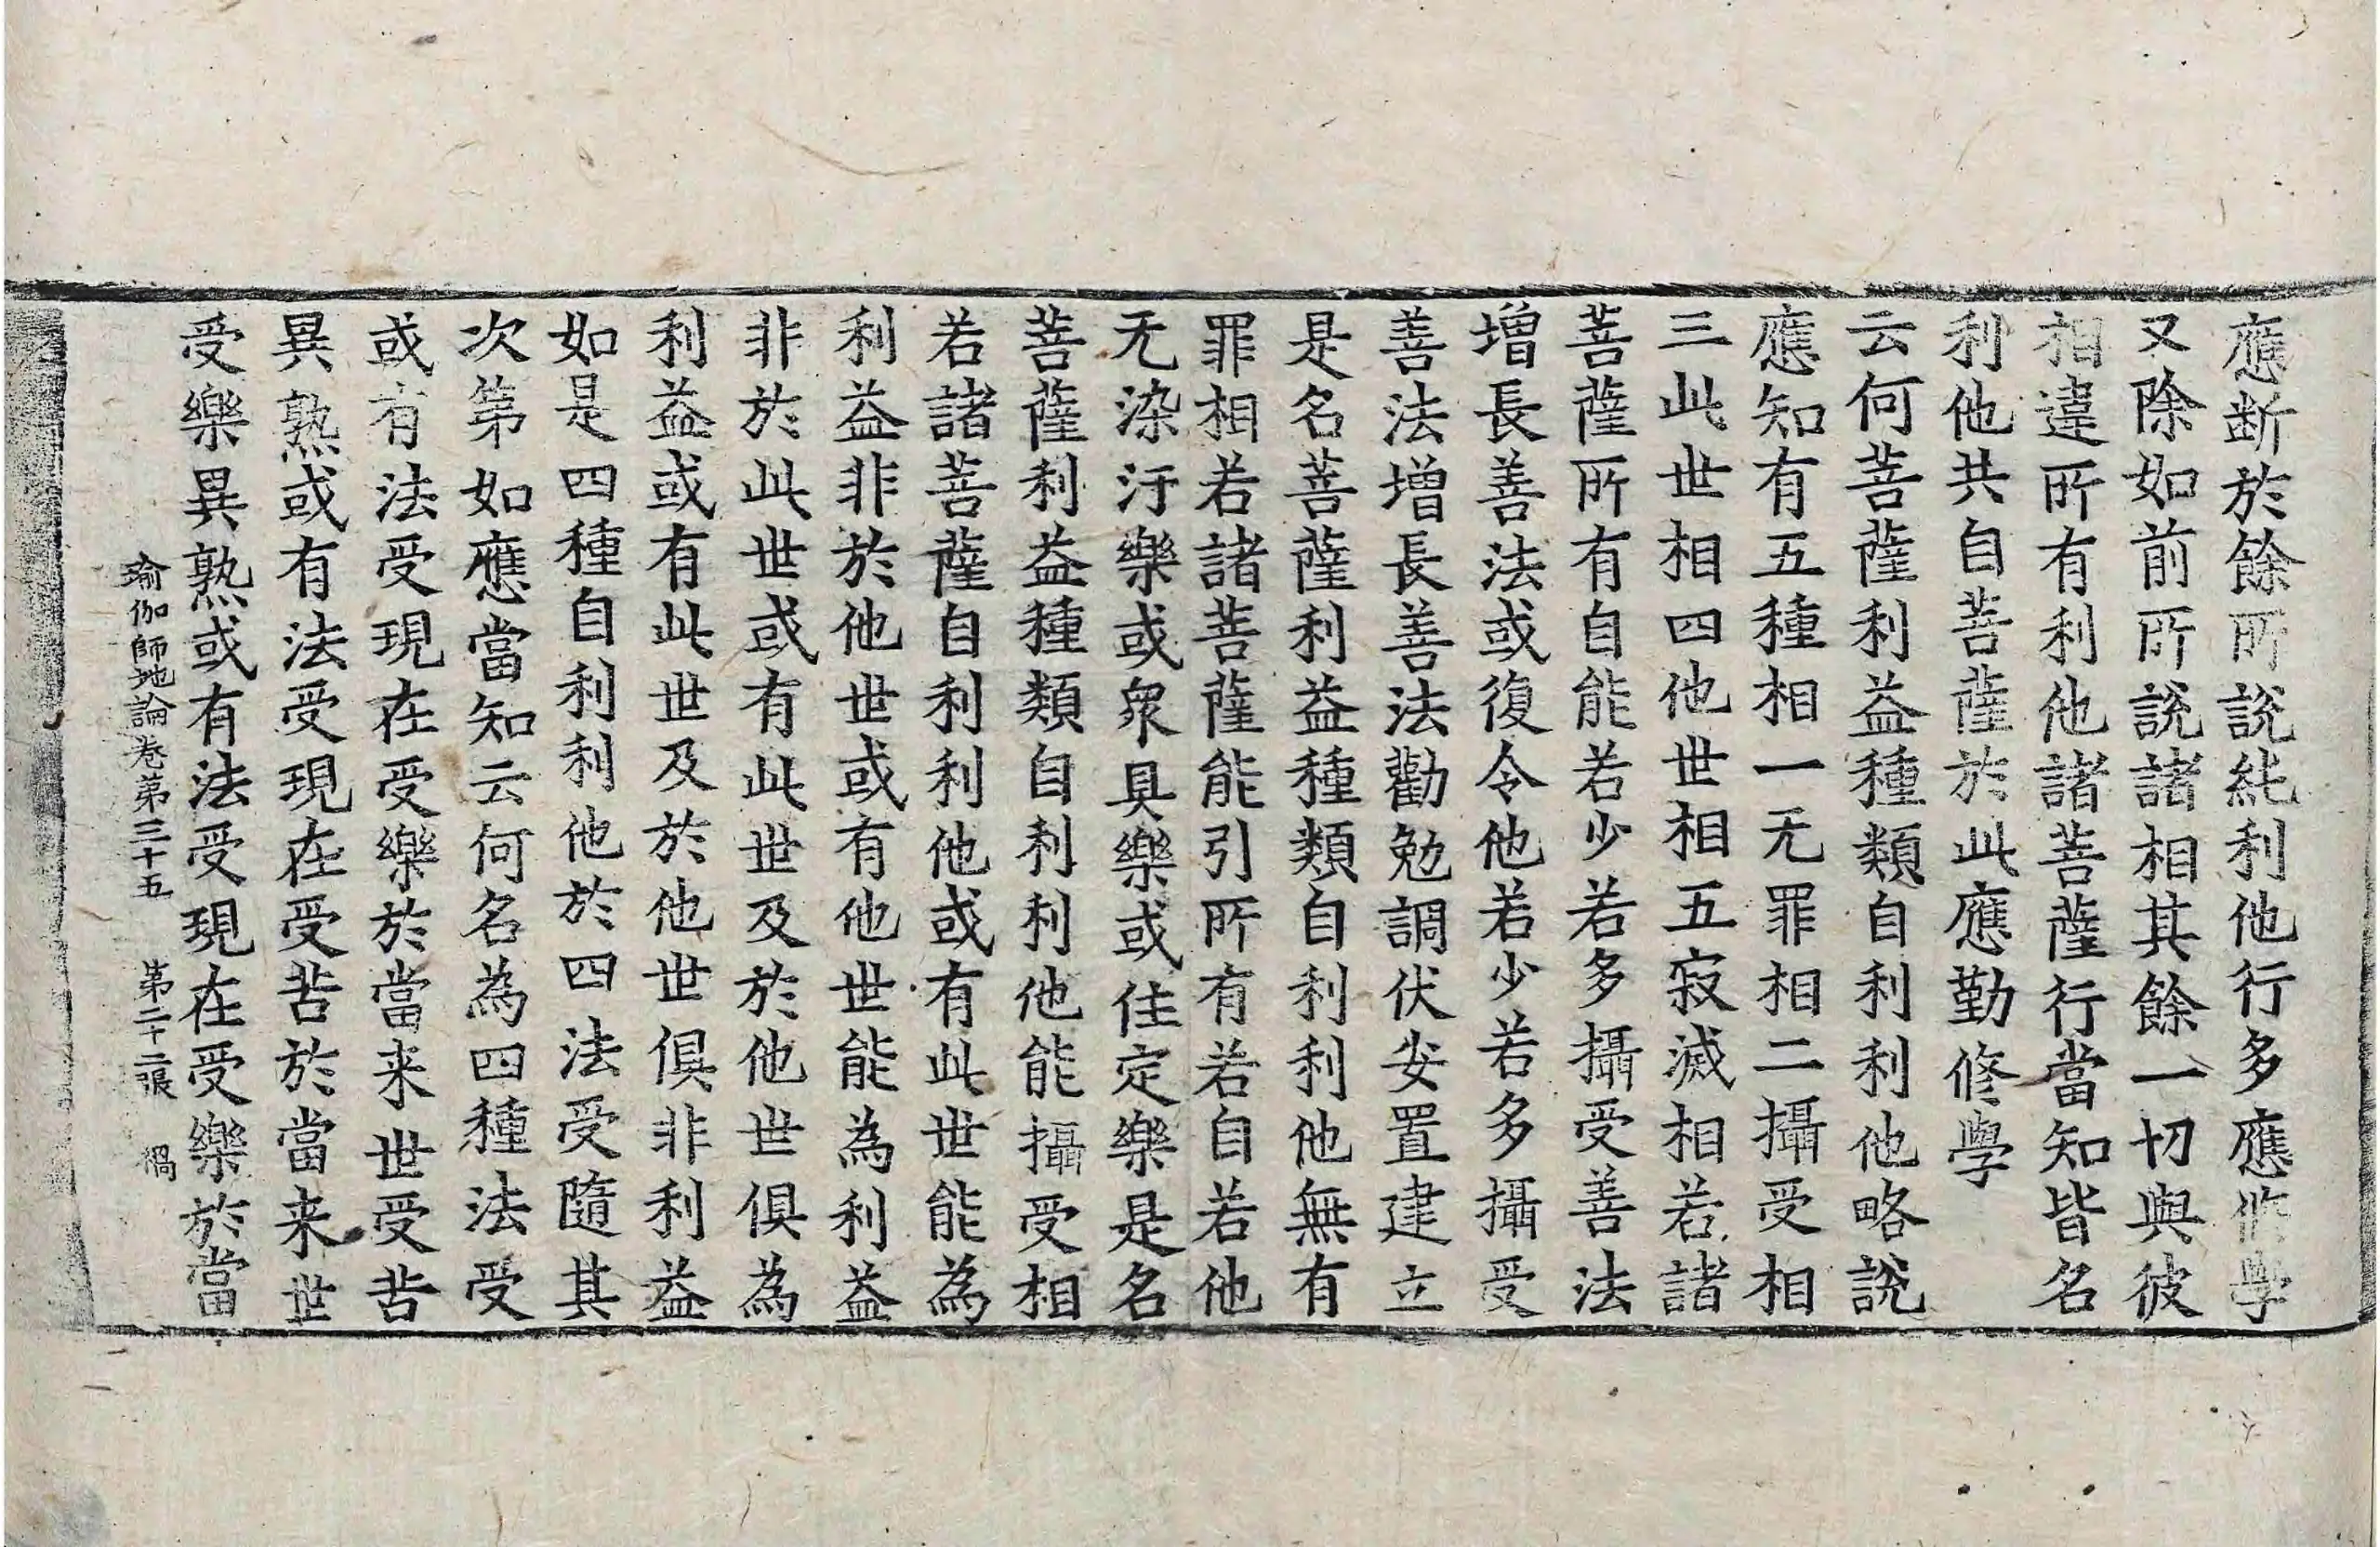 應断於餘所說純利他行多應修學
又除如前所說諸相其餘一切與彼
相違所有利他諸菩薩行當知皆名
利他共自菩薩於此應勤修學
云何菩薩利益種類自利利他略說
應知有五種相一无罪相二攝受相
三此世相四他世相五寂滅相若諸
菩薩所有自能若少若多攝受善法
增長善法或復令他若少若多攝受
善法增長善法勸勉調伏安置建立
是名菩薩利益種類自利利他無有
罪相若諸菩薩能引所有若自若他
无染汙樂或衆具樂或住定樂是名
菩薩利益種類自利利他能攝受相
若諸菩薩自利利他或有此世能為
利益非於他世或有他世能為利益
非於此世或有此世及於他世俱為
利益或有此世及於他世俱非利益
如是四種自利利他於四法受隨其
次第如應當知云何名為四種法受
或有法受現在受樂於當来世受苦
異熟或有法受現在受苦於當来世
受樂異熟或有法受現在受樂於當
瑜伽師地論卷第三十五 第二十二張